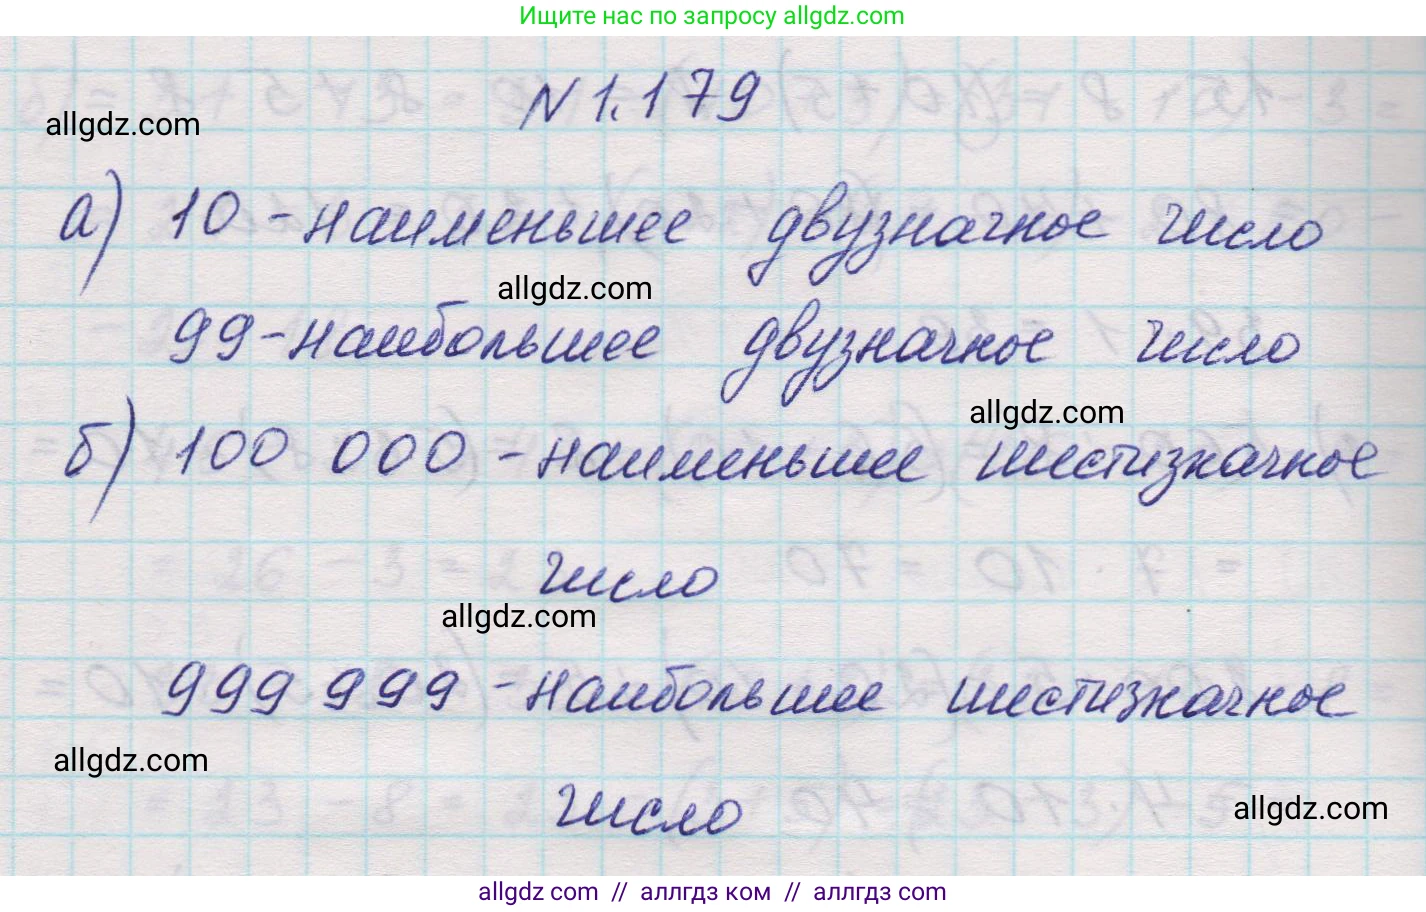 Ищите нас по запросу allgdz.com
N 1.179
allgdz.com
а) 10 - наименьшее двузначное число
allgdz.com
99 - наибольшее двузначное число
allgdz.com
б) 100 000 - наименьшее шестизначное
число
allgdz.com
999 999 - наибольшее шестизначное
allgdz.com
число
allgdz.com
allgdz com // аллгдз ком // аллгдз com